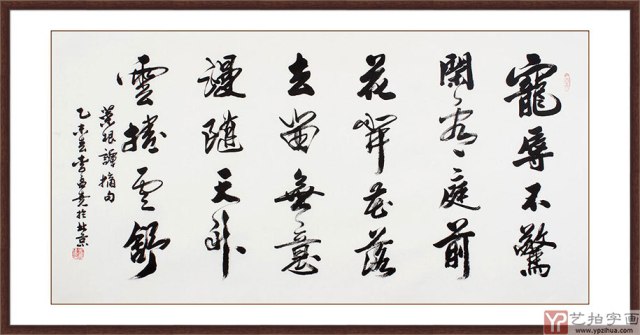 寵辱不驚
閑看庭前
花開花落
去留無意
漫隨天外
雲捲云舒
菜根譚摘句
乙未 李 於北京
YP 艺拍字画
www.ypzihua.com